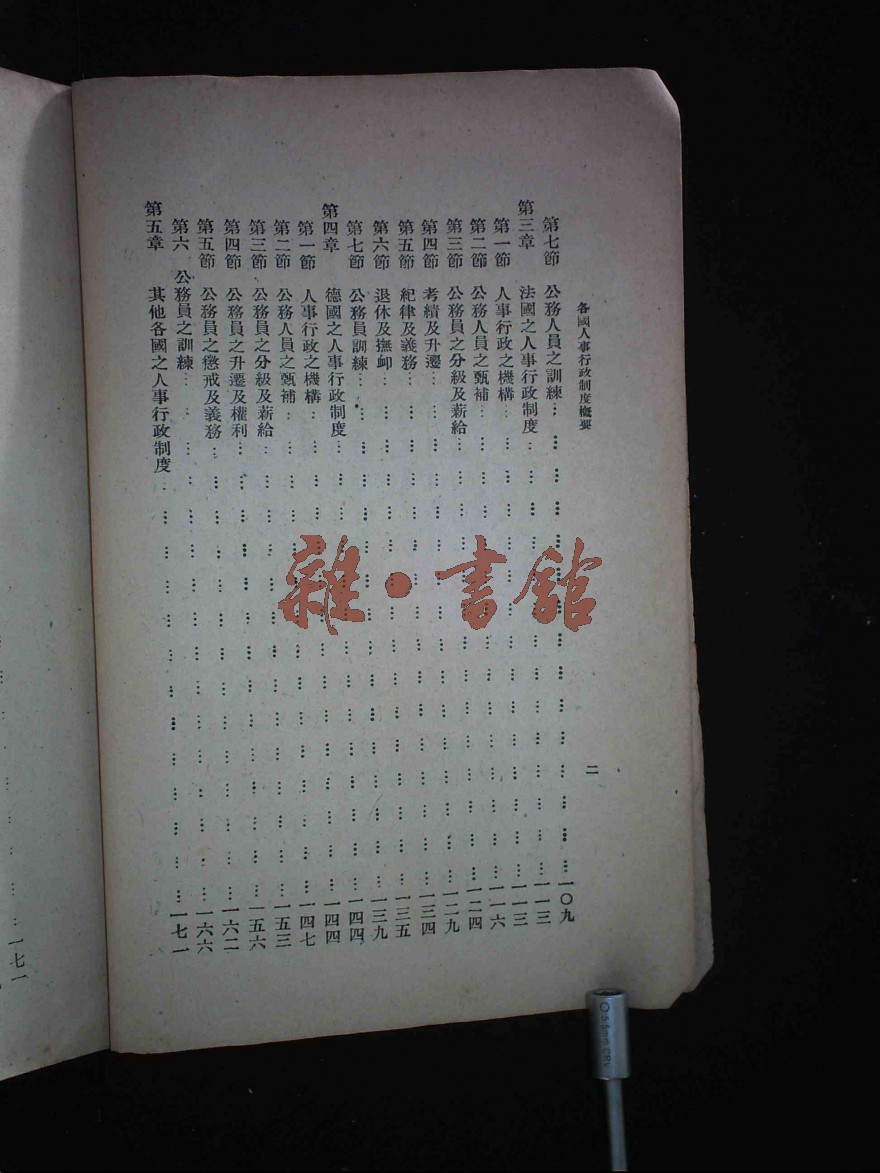 各國人事行政制度概要
二
第七節 公務人員之訓練…一〇九
第三章 法國之人事行政制度…一一三
第一節 人事行政之機構…一一三
第二節 公務人員之甄補…一一六
第三節 公務員之分級及薪給…一二四
第四節 考績及升遷…一二九
第五節 紀律及義務…一三四
第六節 退休及撫卹…一三五
第七節 公務員訓練…一三九
第四章 德國之人事行政制度…一四四
第一節 人事行政之機構…一四四
第二節 公務人員之甄補…一四七
第三節 公務員之分級及薪給…一五三
第四節 公務員之升遷及權利…一五六
第五節 公務員之懲戒及義務…一六二
第六 公務員之訓練…一六六
第五章 其他各國之人事行政制度…一七一
一七一
雜·書館
5.5mm CRV